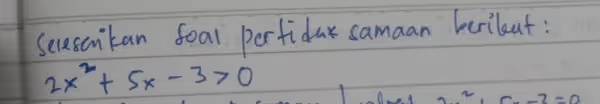 Selesaikan soal pertidak samaan berikut :
2x² + 5x - 3 > 0